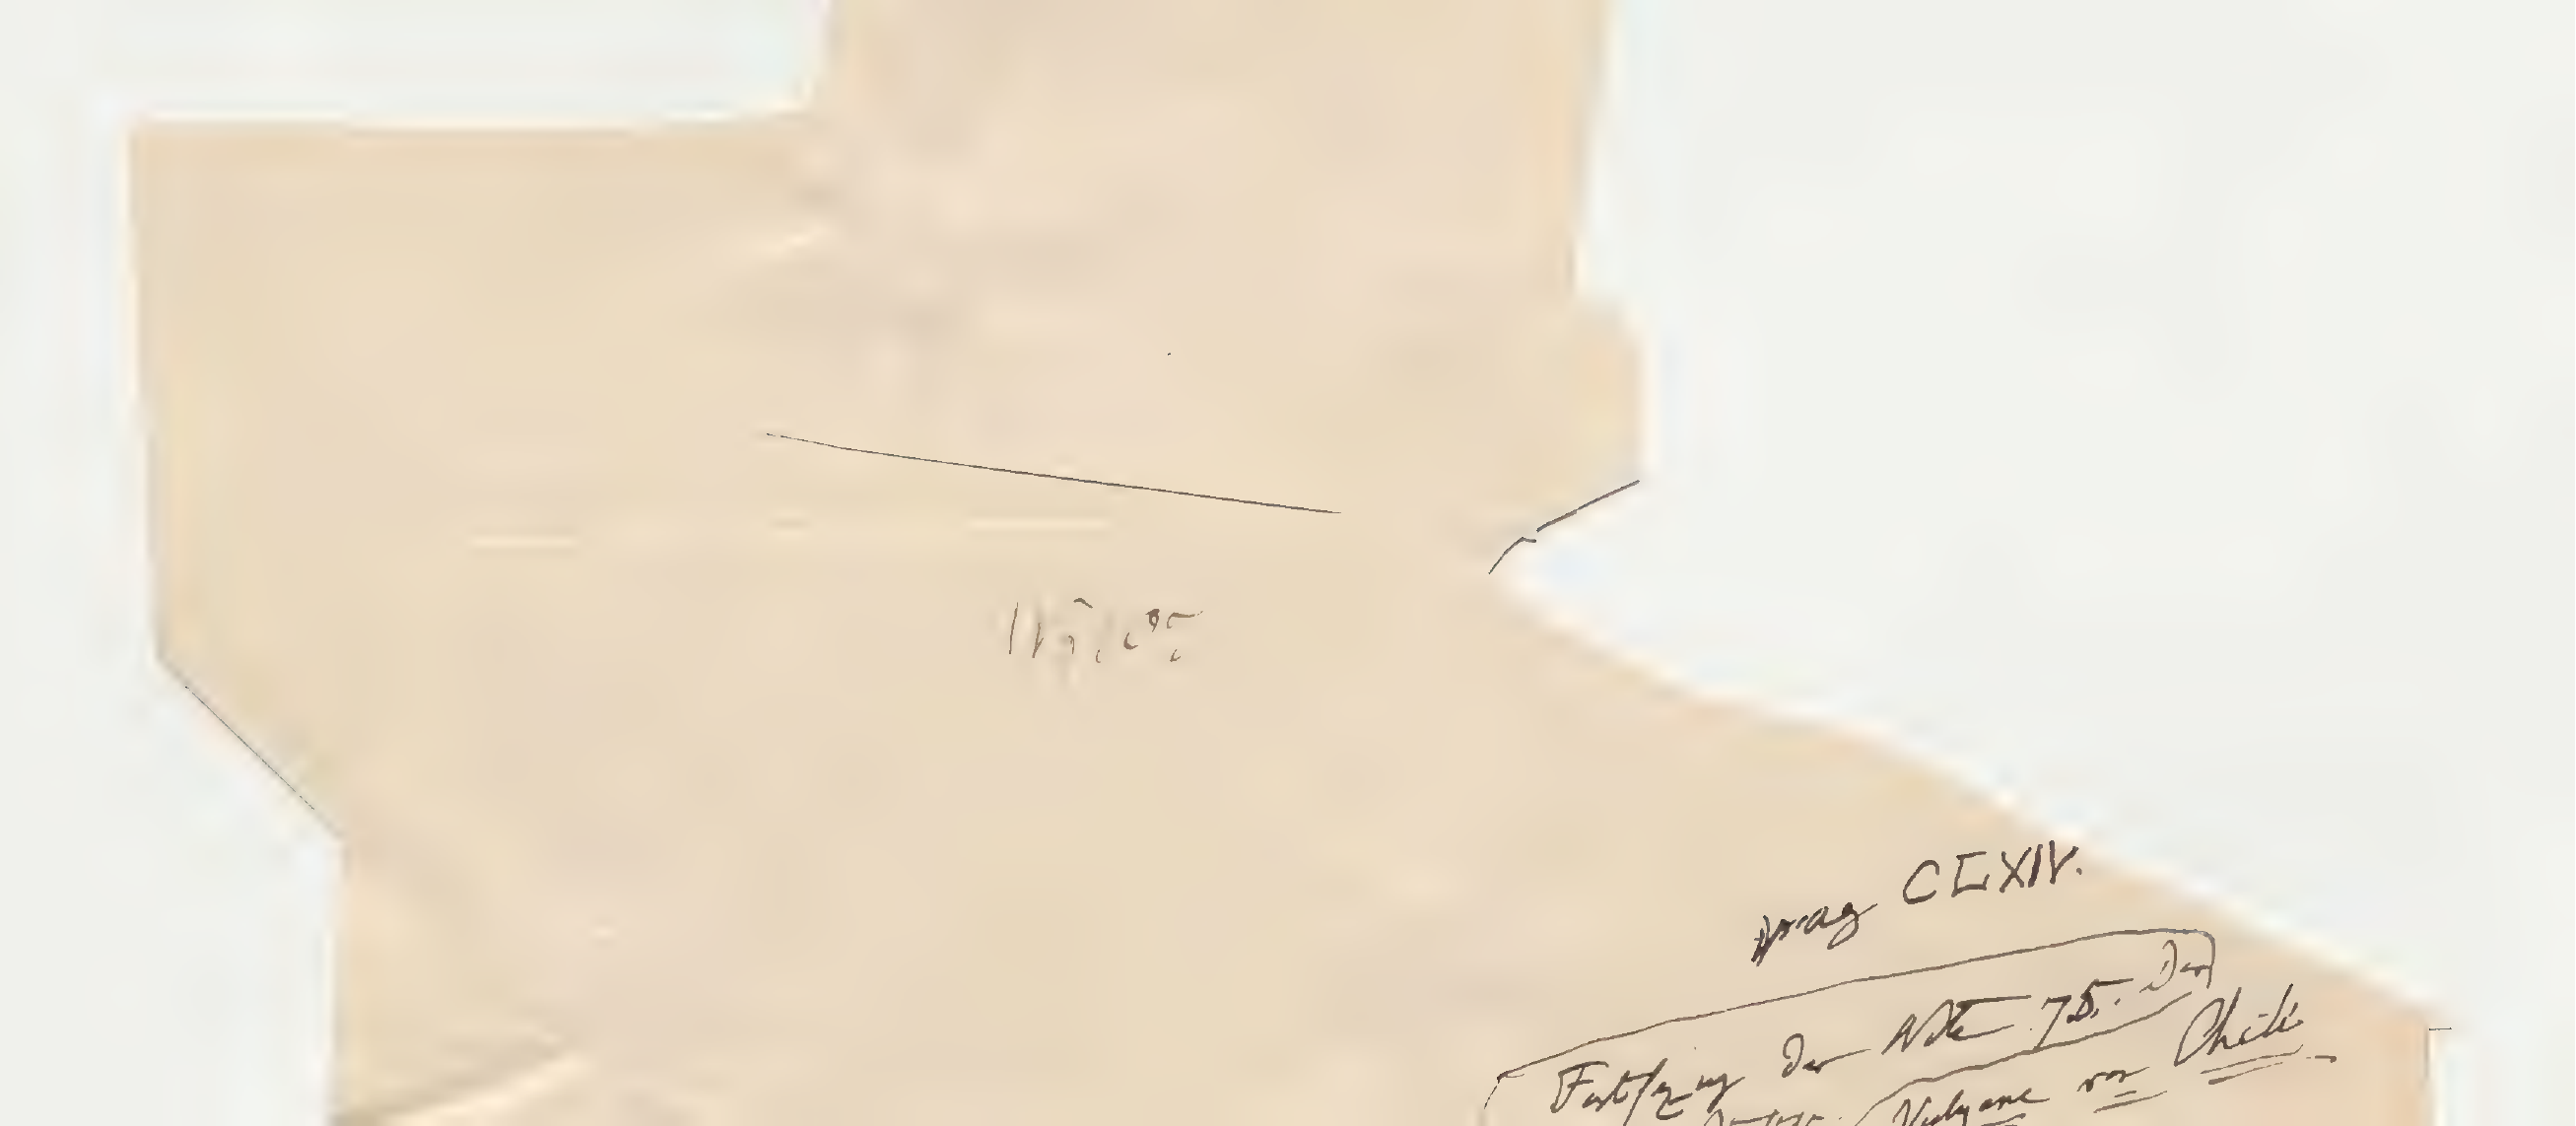 pag CLXIV.
Fortsezung der Note 75. Der
Vulkane von Chili